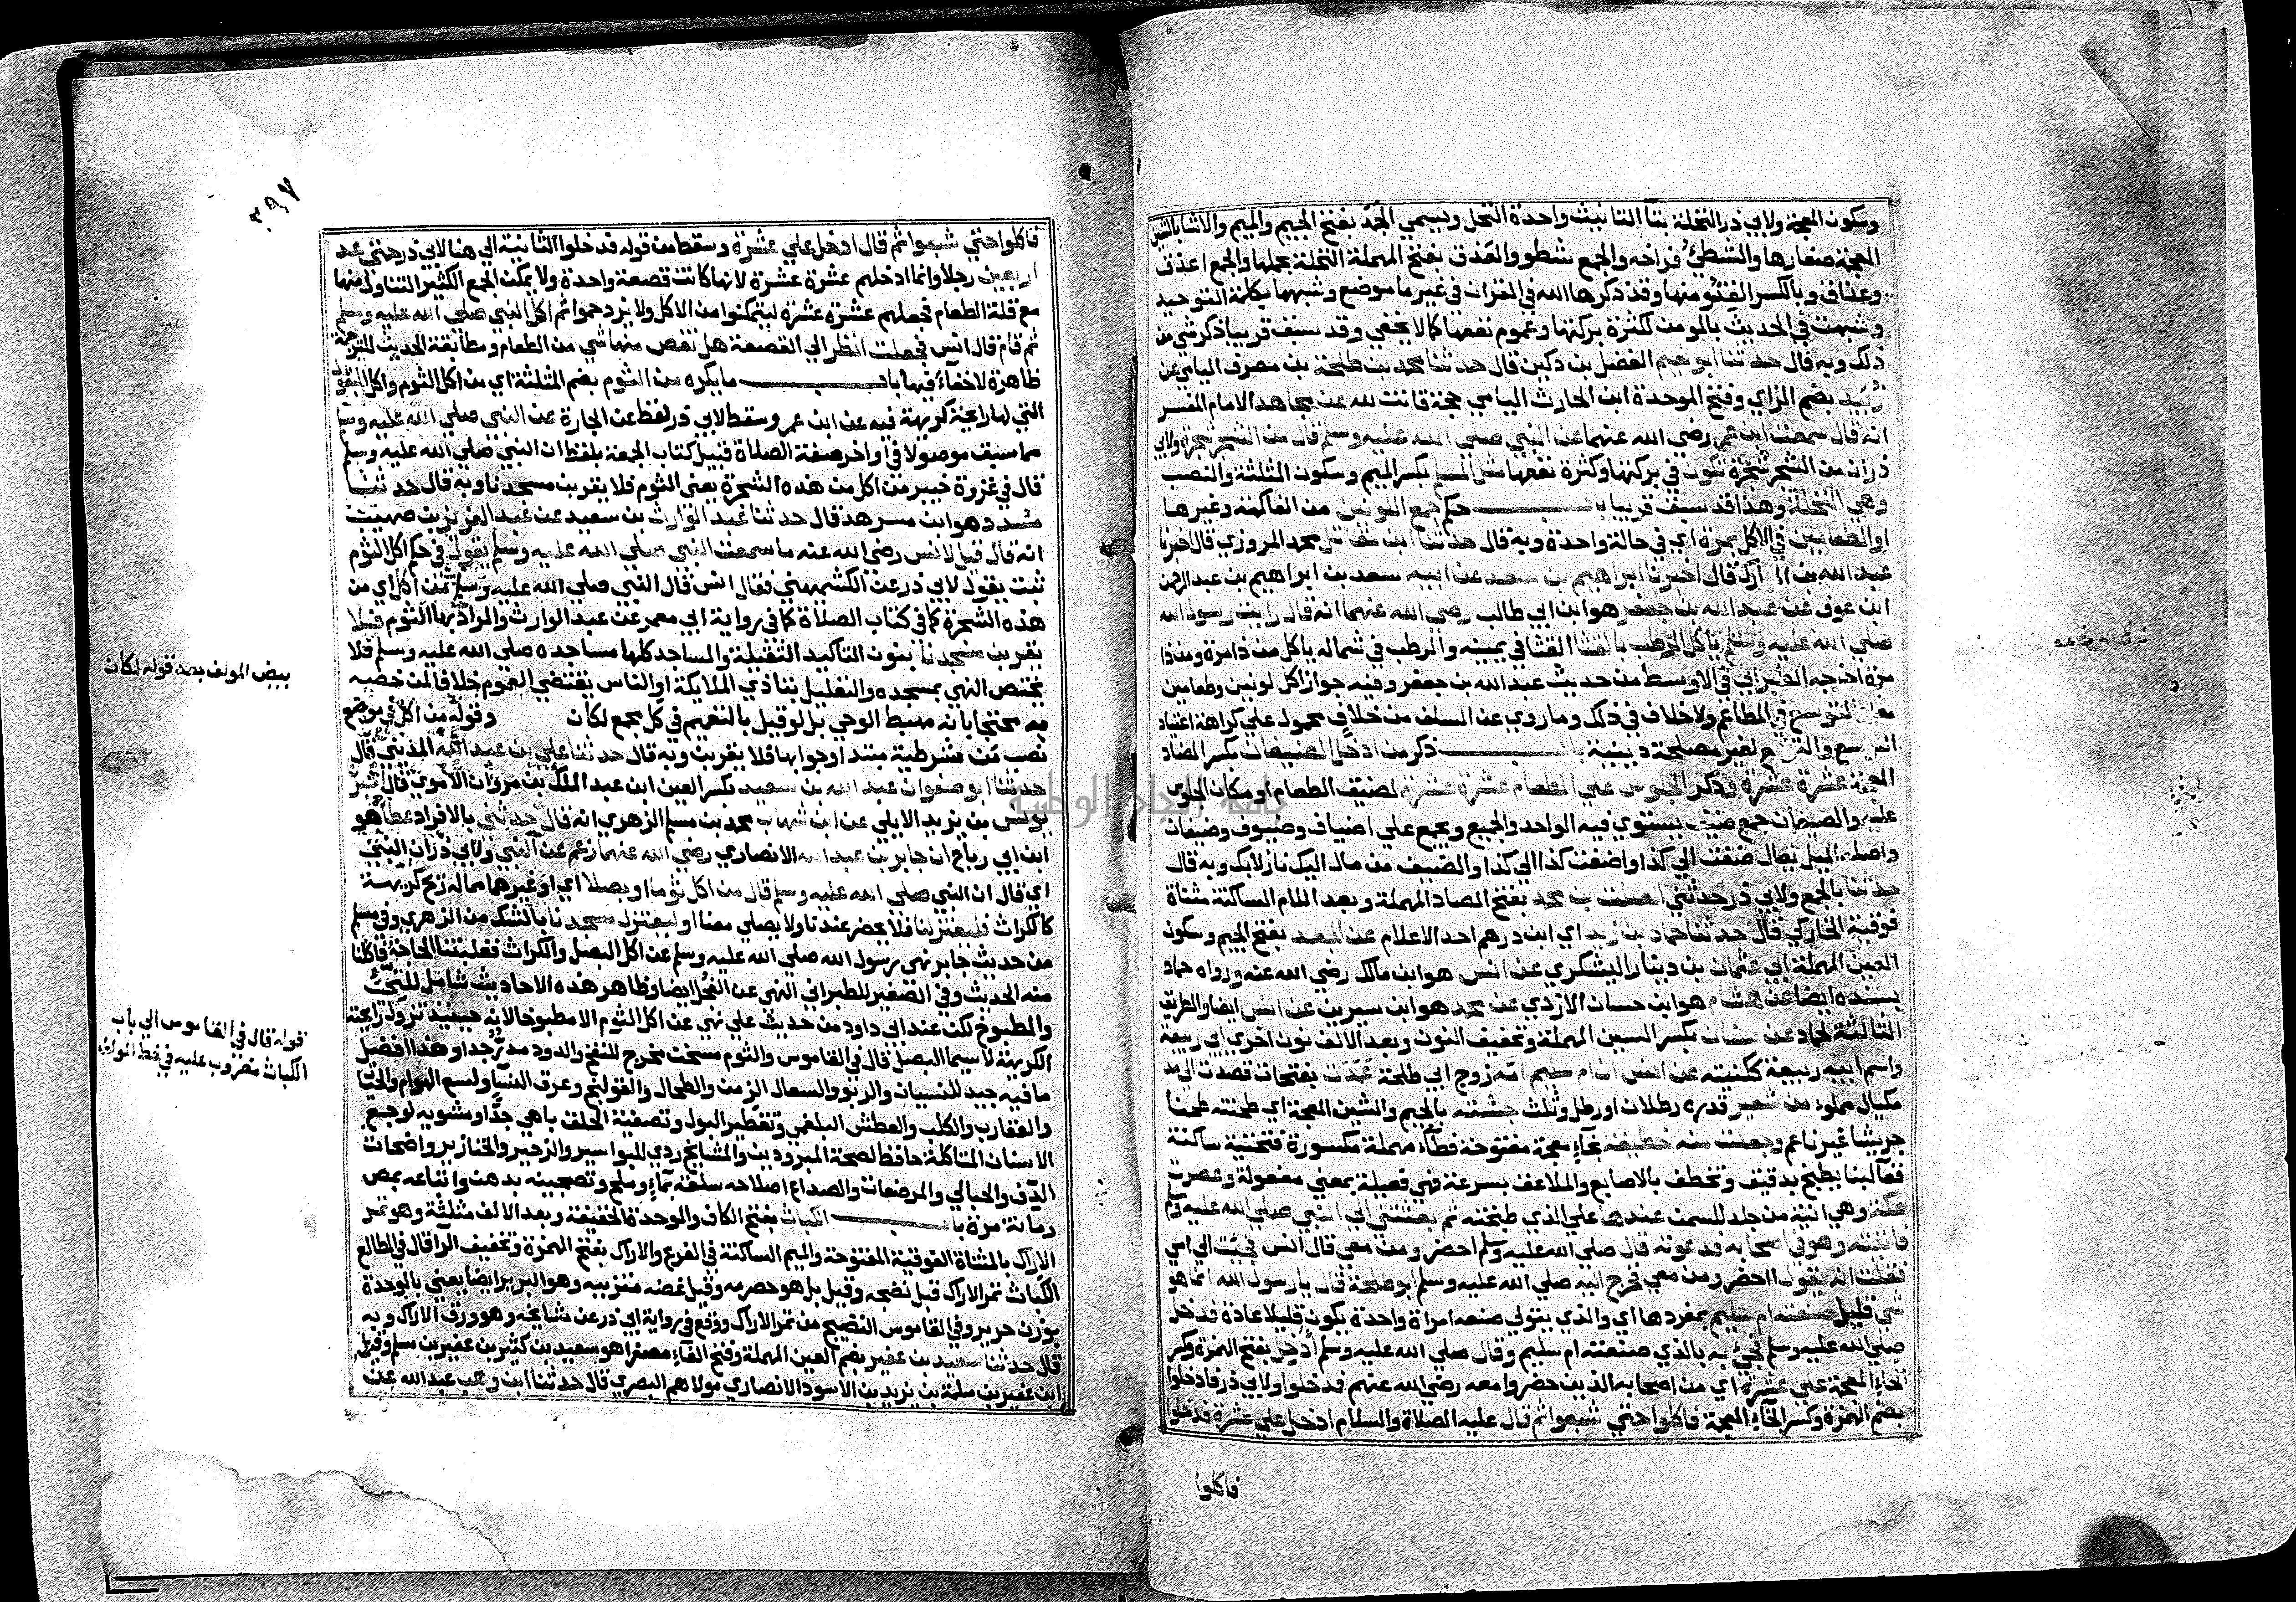 وسكون المعجمة ولابي ذر النخلة بتاء التانيث واحدة النخل ويسمي الجمد بفتح الجيم والميم والاشا بالشين
المعجمة صغارها والشطئ فراخه والجمع شطو والعذق بفتح المهملة النخلة بحملها والجمع اعذق
وعذاق وبالكسر القنو منها وقد ذكرها الله في القران في غير ما موضع وشبهها بكلمة التوحيد
وشبهت في الحديث بالمومن لكثرة بركتها وعموم نفعها كما لا يخفي وقد سبق قريبا ذكر شي من
ذلك وبه قال حدثنا ابو نعيم الفضل بن دكين قال حدثنا محمد بن طلحة بن مصرف اليامي عن
زبيد بضم الزاي وفتح الموحدة ابن الحارث اليامي حجة قانت لله عن مجاهد الامام المفسر
انه قال سمعت ابن عمر رضي الله عنهما عن النبي صلي الله عليه وسلم قال من الشجر شجرة ولابي
ذر ان من الشجر شجرة تكون في بركتها وكثرة نفعها مثل المسلم بكسر الميم وسكون المثلثة والنصب
وهي النخلة وهذا قد سبق قريبا باب حكم جمع اللونين من الفاكهة وغيرها
او الطعامين في الاكل بمرة اي في حالة واحدة وبه قال حدثنا ابن مقاتل محمد المروزي قال اخبرنا
عبد الله بن المبارك قال اخبرنا ابراهيم بن سعد عن ابيه سعد بن ابراهيم بن عبد الرحمن
ابن عوف عن عبد الله بن جعفر هو ابن ابي طالب رضي الله عنهما انه قال رايت رسول الله
صلي الله عليه وسلم ياكل الرطب بالقثا القثا في يمينه والرطب في شماله ياكل من ذا مرة ومن ذا
مرة اخرجه الطبراني في الاوسط من حديث عبد الله بن جعفر وفيه جواز اكل لونين وطعامين
معا والتوسع في المطاعم ولا خلاف في ذلك وما روي عن السلف من خلاف محمول علي كراهة اعتياد
التوسع والترفه لغير مصلحة دينية باب ذكر من ادخل الضيفان بكسر الضاد
المعجمة عشرة عشرة وذكر الجلوس علي الطعام عشرة عشرة لضيق الطعام او مكان الجلوس
عليه والضيفان جمع ضيف يستوي فيه الواحد والجمع ويجمع علي اضياف وضيوف وضيفان
واصله الميل يقال ضفت الي كذا واضفت كذا الي كذا والضيف من مال اليك نازلا بك وبه قال
حدثنا بالجمع ولابي ذر حدثني الصلت بن محمد بفتح الصاد المهملة وبعد اللام الساكنة مثناة
فوقية الخاركي قال حدثنا حماد بن زيد اي ابن درهم احد الاعلام عن الجعد بفتح الجيم وسكون
العين المهملة ابي عثمان بن دينار اليشكري عن انس هو ابن مالك رضي الله عنه ورواه حماد
بسنده ايضا عن هشام هو ابن حسان الازدي عن محمد هو ابن سيرين عن انس ايضا والطريق
الثالثة لحماد عن سنان بكسر السين المهملة وتخفيف النون وبعد الالف نون اخري ابي ربيعة
واسم ابيه ربيعة ككنيته عن انس ان ام سليم امه زوج ابي طلحة عمدت بفتحات قصدت الي مد
مكيال مملوء من شعير قدره رطلان او رطل وثلث جشته بالجيم والشين المعجمة اي طحنته طحنا
جريشا غير ناعم وجعلت منه خطيفة بخاء معجمة مفتوحة فطاء مهملة مكسورة فتحتية ساكنة
ففا لبنا يطبخ بدقيق وتخطف بالاصابع والملاعق بسرعة فهي فعيلة بمعني مفعولة وعصرت
عكة وهي انية من جلد للسمن عندها علي الذي طبخته ثم بعثتني الي النبي صلي الله عليه وسلم
فاتيته وهو في اصحابه فدعوته قال صلي الله عليه وسلم احضر ومن معي قال انس فجئت الي امي
فقلت انه يقول احضر ومن معي فخرج اليه صلي الله عليه وسلم ابو طلحة قال يا رسول الله انما هو
شي قليل صنعته ام سليم بمفردها اي والذي يتولي صنعه امراة واحدة يكون قليلا عادة فدخل
صلي الله عليه وسلم فجئ به بالذي صنعته ام سليم وقال صلي الله عليه وسلم ادخل بفتح الهمزة وكسر
الخاء المعجمة علي عشرة اي من اصحابه الذين حضروا معه رضي الله عنهم فدخلوا ولابي ذر فادخلوا
بضم الهمزة وكسر الخاء المعجمة فاكلوا حتي شبعوا ثم قال عليه الصلاة والسلام ادخل علي عشرة فدخلوا
فاكلوا
٣٩٧
فاكلوا حتي شبعوا ثم قال ادخل علي عشرة وسقط من قوله فدخلوا الثانية الي هنا لابي ذر حتي عد
اربعين رجلا وانما ادخلهم عشرة عشرة لانها كانت قصعة واحدة ولا يمكن الجمع الكثير التناول منها
مع قلة الطعام فجعلهم عشرة عشرة ليتمكنوا من الاكل ولا يزدحموا ثم اكل النبي صلي الله عليه وسلم
ثم قام قال انس فجعلت انظر الي القصعة هل نقص منها شي من الطعام ومطابقة الحديث للترجمة
ظاهرة لا خفاء فيها باب ما يكره من الثوم بضم المثلثة اي من اكل الثوم واكل البقول
التي لها رايحة كريهة فيه عن ابن عمر وسقط لابي ذر لفظ عن الجارة عن النبي صلي الله عليه وسلم
مما سبق موصولا في اواخر صفة الصلاة قبيل كتاب الجمعة بلفظ ان النبي صلي الله عليه وسلم
قال في غزوة خيبر من اكل من هذه الشجرة يعني الثوم فلا يقربن مسجدنا وبه قال حدثنا
مسدد هو ابن مسرهد قال حدثنا عبد الوارث بن سعيد عن عبد العزيز بن صهيب
انه قال قيل لانس رضي الله عنه ما سمعت النبي صلي الله عليه وسلم يقول في حكم اكل الثوم
ثبت يقول لابي ذر عن الكشميهني فقال انس قال النبي صلي الله عليه وسلم من اكل اي من
هذه الشجرة كما في كتاب الصلاة كما في رواية ابي معمر عن عبد الوارث والمراد بها الثوم فلا
يقربن مسجدنا بنون التاكيد الثقيلة والمساجد كلها مساجده صلي الله عليه وسلم فلا
يختص النهي بمسجده والتعليل بتاذي الملايكة او الناس يقتضي العموم خلافا لمن خصه
به محتجا بانه مهبط الوحي بل لو قيل بالتعميم في كل مجمع لكان وقوله من اكل في موضع
نصب من شرطية مبتدا وجوابها فلا يقربن وبه قال حدثنا علي بن عبد الله المديني قال
حدثنا ابو صفوان عبد الله بن سعيد بكسر العين ابن عبد الملك بن مروان الاموي قال اخبرنا
يونس بن يزيد الايلي عن ابن شهاب محمد بن مسلم الزهري انه قال حدثني بالافراد عطا هو
ابن ابي رباح ان جابر بن عبد الله الانصاري رضي الله عنهما زعم عن النبي ولابي ذر ان النبي
اي قال ان النبي صلي الله عليه وسلم قال من اكل ثوما او بصلا اي او غيرهما مما له ريح كريهة
كالكراث فليعتزلنا فلا يحضر عندنا ولا يصلي معنا او ليعتزل مسجدنا بالشك من الزهري وفي مسلم
من حديث جابر نهي رسول الله صلي الله عليه وسلم عن اكل البصل والكراث فغلبتنا الحاجة فاكلنا
منه الحديث وفي الصغير للطبراني النهي عن الفجل ايضا وظاهر هذه الاحاديث شامل للنئ
والمطبوخ لكن عند ابي داود من حديث علي نهي عن اكل الثوم الا مطبوخا لانه حينئذ تزول رايحته
الكريهة لا سيما البصل قال في القاموس والثوم مسخن مخرج للنفخ والدود مدر جدا وهذا افضل
ما فيه جيد للنسيان والربو والسعال المزمن والطحال والقولنج وعرق النسا ولسع الهوام والحيات
والعقارب والكلب والعطش البلغمي وتقطير البول وتصفية الحلق باهي جدا ومشويه لوجع
الاسنان المتاكلة حافظ لصحة المبرودين والمشايخ ردي للبواسير والزحير والخنازير واصحاب
الدق والحبالي والمرضعات والصداع اصلاحه سلقه بماء وملح وتطجينه بدهن واتباعه بمص
رمانة مزة باب الكباث بفتح الكاف والموحدة الخفيفة وبعد الالف مثلثة وهو تمر
الاراك بالمثناة الفوقية المفتوحة والميم الساكنة في الفرع والاراك بفتح الهمزة وتخفيف الرا قال في المطالع
الكباث ثمر الاراك قبل نضجه وقيل بل هو حصرمه وقيل غضه متزببه وهو البرير ايضا يعني بالموحدة
بوزن حرير وفي القاموس النضيج من ثمر الاراك ووقع في رواية ابي ذر عن مشايخه وهو ورق الاراك وبه
قال حدثنا سعيد بن عفير بضم العين المهملة وفتح الفاء مصغرا هو سعيد بن كثير بن عفير بن مسلم وقيل
ابن عفير بن سلمة بن يزيد بن الاسود الانصاري مولاهم البصري قال حدثنا ابن وهب عبد الله عن
بيض المولف بعد قوله لكان
قوله قال في القاموس الي باب
الكباث مضروب عليه في خط المولف
جامعة النجاح الوطنية